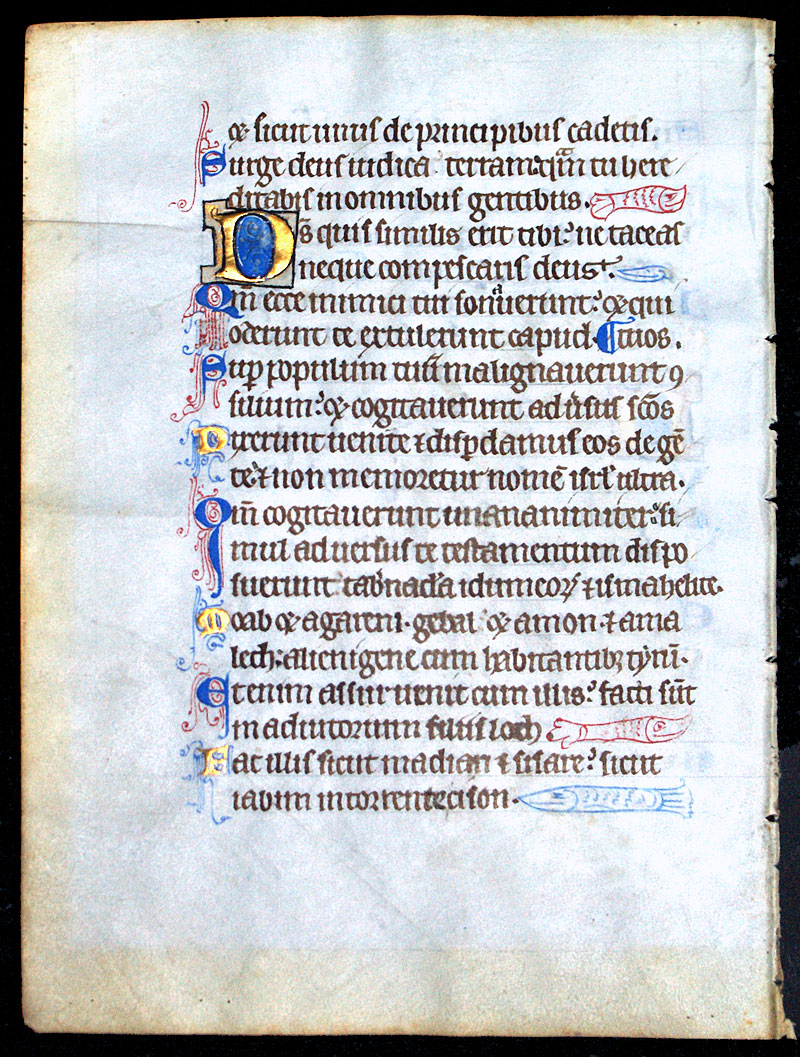 ⁊ sicut unus de principibus cadetis.
Surge deus iudica terram: qm̄ tu here
ditabis in omnibus gentibus.
Ds̄ quis similis erit tibi: ne taceas
neque compescaris deus.
Qm̄ ece inimici tui sonauerunt: ⁊ qui
oderunt te extulerunt capud. tuos.
Sup̱ populum tuū malignauerunt ꝯ
silium: ⁊ cogitauerunt adūsus sc̄os
Dixerunt uenite ⁊ disp̱damus eos de gē
te: ⁊ non memoretur nomē isrl̄ ultra.
Qm̄ cogitauerunt unananimiter: si
mul aduersus te testamentum dispo
suerunt tab̄nac̄la idumeoꝝ ⁊ ismahelite.
Moab ⁊ agareni. gebal ⁊ amon. ⁊ ama
lech: alienigene cum habitantibꝫ tyrū.
Etenim assur uenit cum illis: facti sūt
in adiutorium filiis loth
Fac illis sicut madian ⁊ sisare: sicut
iabin in torrente cison.